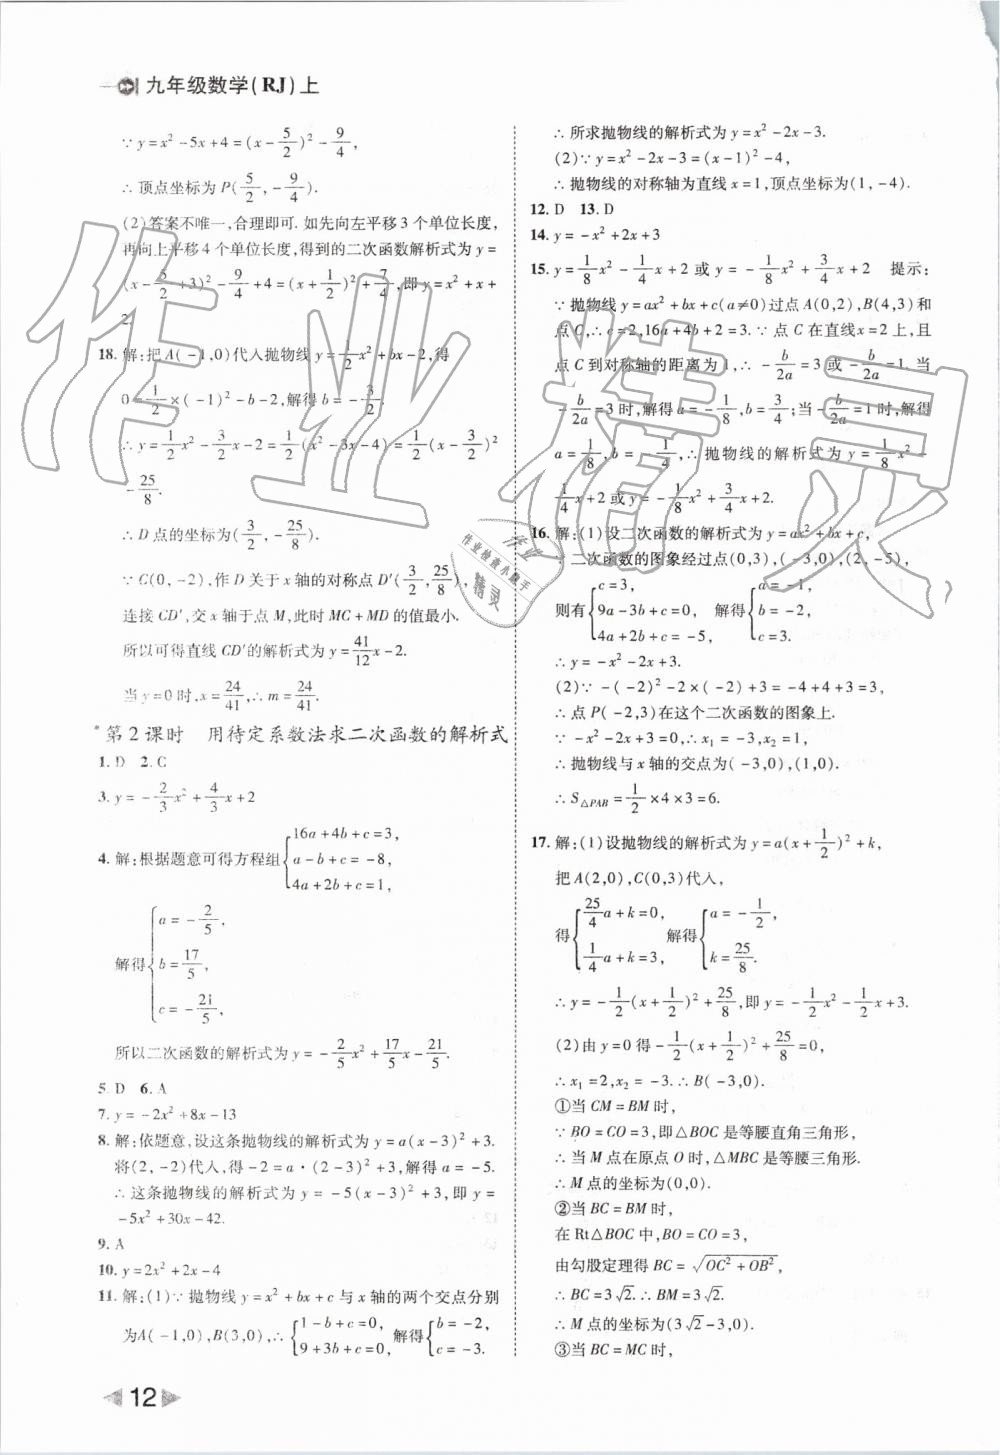 九年级数学(RJ)上
∵y=x²-5x+4=(x-5/2)²-9/4,
∴顶点坐标为P(5/2,-9/4).
(2)答案不唯一,合理即可.如先向左平移3个单位长度,
再向上平移4个单位长度,得到的二次函数解析式为y=
(x-5/2+3)²-9/4+4=(x+1/2)²+7/4,即y=x²+x+
2.
18.解:把A(-1,0)代入抛物线y=1/2x²+bx-2,得
0=1/2×(-1)²-b-2,解得b=-3/2.
∴y=1/2x²-3/2x-2=1/2(x²-3x-4)=1/2(x-3/2)²
-25/8.
∴D点的坐标为(3/2,-25/8).
∵C(0,-2),作D关于x轴的对称点D′(3/2,25/8),
连接CD′,交x轴于点M,此时MC+MD的值最小.
所以可得直线CD′的解析式为y=41/12x-2.
当y=0时,x=24/41,∴m=24/41.
*第2课时 用待定系数法求二次函数的解析式
1.D 2.C
3.y=-2/3x²+4/3x+2
4.解:根据题意可得方程组{16a+4b+c=3,
a-b+c=-8,
4a+2b+c=1,
解得{a=-2/5,
b=17/5,
c=-21/5,
所以二次函数的解析式为y=-2/5x²+17/5x-21/5.
5.D 6.A
7.y=-2x²+8x-13
8.解:依题意,设这条抛物线的解析式为y=a(x-3)²+3.
将(2,-2)代入,得-2=a·(2-3)²+3,解得a=-5.
∴这条抛物线的解析式为y=-5(x-3)²+3,即y=
-5x²+30x-42.
9.A
10.y=2x²+2x-4
11.解:(1)∵抛物线y=x²+bx+c与x轴的两个交点分别
为A(-1,0),B(3,0),∴{1-b+c=0, 9+3b+c=0, 解得{b=-2, c=-3.
∴所求抛物线的解析式为y=x²-2x-3.
(2)∵y=x²-2x-3=(x-1)²-4,
∴抛物线的对称轴为直线x=1,顶点坐标为(1,-4).
12.D 13.D
14.y=-x²+2x+3
15.y=1/8x²-1/4x+2或y=-1/8x²+3/4x+2 提示:
∵抛物线y=ax²+bx+c(a≠0)过点A(0,2),B(4,3)和
点C,∴c=2,16a+4b+2=3.∵点C在直线x=2上,且
点C到对称轴的距离为1,∴-b/2a=3或-b/2a=1.当
-b/2a=3时,解得a=-1/8,b=3/4;当-b/2a=1时,解得
a=1/8,b=-1/4,∴抛物线的解析式为y=1/8x²-
1/4x+2或y=-1/8x²+3/4x+2.
16.解:(1)设二次函数的解析式为y=ax²+bx+c,
∵二次函数的图象经过点(0,3),(-3,0),(2,-5),
则有{c=3, 9a-3b+c=0, 4a+2b+c=-5, 解得{a=-1, b=-2, c=3.
∴y=-x²-2x+3.
(2)∵-(-2)²-2×(-2)+3=3,
∴点P(-2,3)在这个二次函数的图象上.
∵-x²-2x+3=0,∴x₁=-3,x₂=1,
∴抛物线与x轴的交点为(-3,0),(1,0).
∴S△PAB=1/2×4×3=6.
17.解:(1)设抛物线的解析式为y=a(x+1/2)²+k,
把A(2,0),C(0,3)代入,
得{25/4a+k=0, 1/4a+k=3, 解得{a=-1/2, k=25/8.
∴y=-1/2(x+1/2)²+25/8,即y=-1/2x²-1/2x+3.
(2)由y=0得-1/2(x+1/2)²+25/8=0,
∴x₁=2,x₂=-3.∴B(-3,0).
①当CM=BM时,
∵BO=CO=3,即△BOC是等腰直角三角形,
∴当M点在原点O时,△MBC是等腰三角形.
∴M点的坐标为(0,0).
②当BC=BM时,
在Rt△BOC中,BO=CO=3,
由勾股定理得BC=√(OC²+OB²),
∴BC=3√2.∴BM=3√2.
∴M点的坐标为(3√2-3,0)
③当BC=MC时,
12
作业精灵
作业检查小助手
作业
精灵